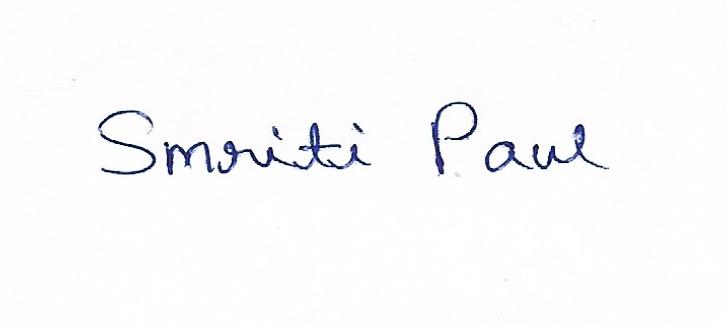 Smriti Paul